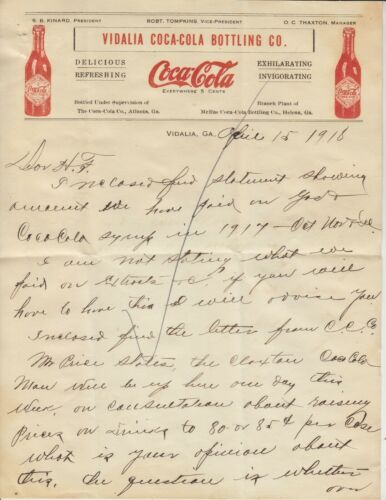 S. B. KINARD, PRESIDENT ROBT. TOMPKINS, VICE-PRESIDENT O. C. THAXTON, MANAGER
VIDALIA COCA-COLA BOTTLING CO.
DELICIOUS
REFRESHING
Coca-Cola
EVERYWHERE 5 CENTS
EXHILARATING
INVIGORATING
Bottled Under Supervision of
The Coca-Cola Co., Atlanta, Ga.
Branch Plant of
McRae Coca-Cola Bottling Co., Helena, Ga.
VIDALIA, GA. April 15 1918
Dear H. F.
I inclosed find statement showing
amount we have paid on
Coca Cola syrup in 1917 - Oct Nov & Dec
I am not stating what we
paid on &c. if you will
have to have this I will advise you
Inclosed find the letter from C.C. Co
Mr Price states, the Claxton Coca Cola
Man will be up here one day this
week, on consultation about raising
Prices on drinks to 80 or 85¢ per Case
what is your opinion about
this, the question is whether
over